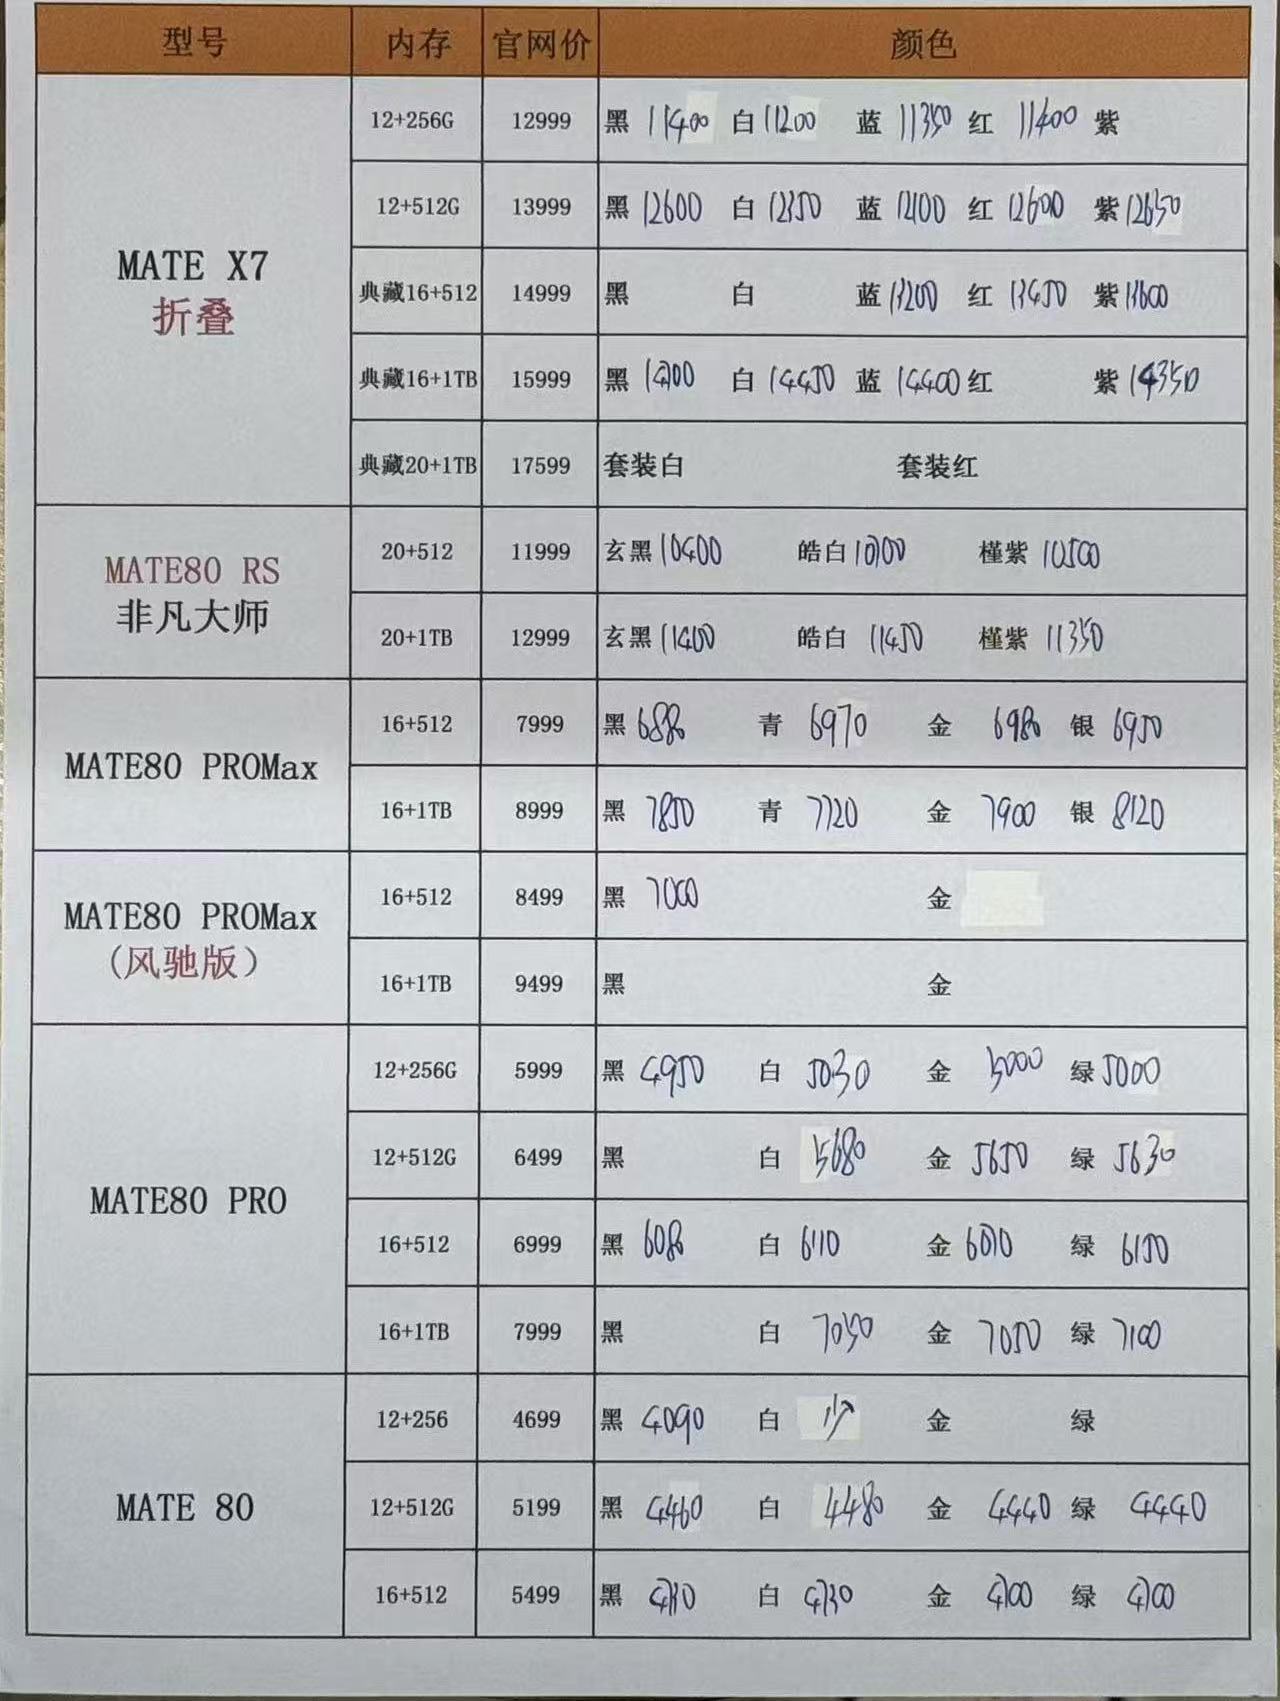 型号 内存 官网价 颜色
MATE X7
折叠
12+256G 12999 黑 11400 白 11200 蓝 11350 红 11400 紫
12+512G 13999 黑 12600 白 12350 蓝 12100 红 12600 紫 12650
典藏16+512 14999 黑 白 蓝 13200 红 13450 紫 13600
典藏16+1TB 15999 黑 白 14450 蓝 14400 红 紫 14350
典藏20+1TB 17599 套装白 套装红
MATE80 RS
非凡大师
20+512 11999 玄黑 10400 皓白 槿紫 10500
20+1TB 12999 玄黑 11400 皓白 11450 槿紫 11350
MATE80 PROMax
16+512 7999 黑 6880 青 6970 金 6980 银 6950
16+1TB 8999 黑 7850 青 7720 金 7900 银 8120
MATE80 PROMax
(风驰版)
16+512 8499 黑 7000 金
16+1TB 9499 黑 金
MATE80 PRO
12+256G 5999 黑 4950 白 5030 金 5000 绿 5000
12+512G 6499 黑 白 5680 金 5650 绿 5630
16+512 6999 黑 6080 白 6110 金 绿 6150
16+1TB 7999 黑 白 7050 金 7050 绿 7100
MATE 80
12+256 4699 黑 4090 白 少 金 绿
12+512G 5199 黑 4460 白 4480 金 4440 绿 4440
16+512 5499 黑 4730 白 4730 金 4700 绿 4700